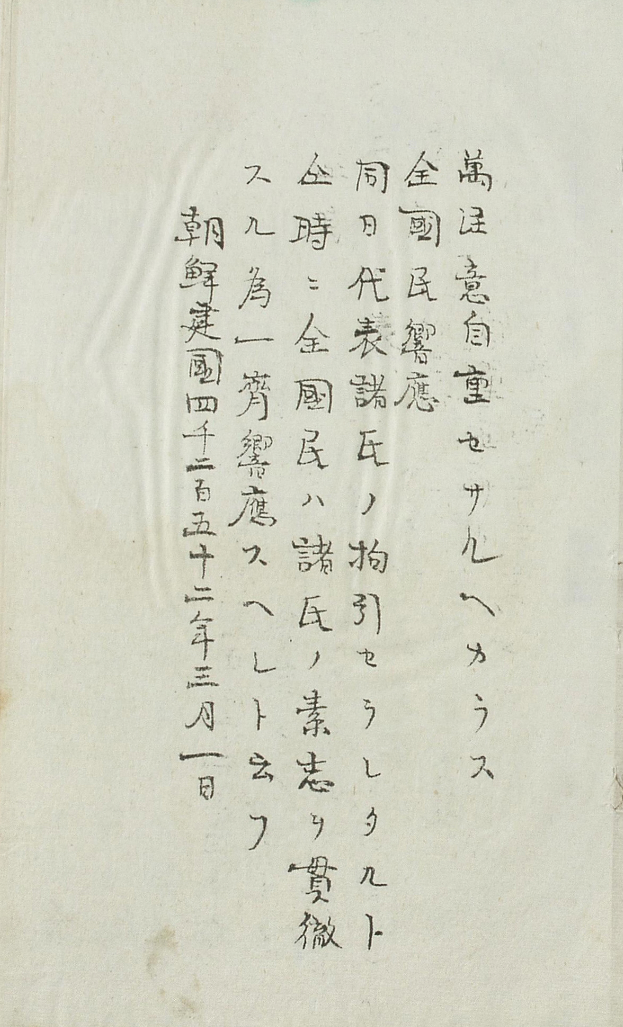 萬注意自重セサルヘカラス
全國民響應
同日代表諸氏ノ拘引セラレタルト
仝時ニ全國民ハ諸氏ノ素志ヲ貫徹
スル為一齊響應スヘレト云フ
朝鮮建國四千二百五十二年三月一日